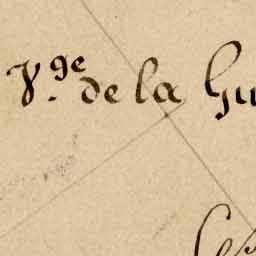 V.ge de la Gu